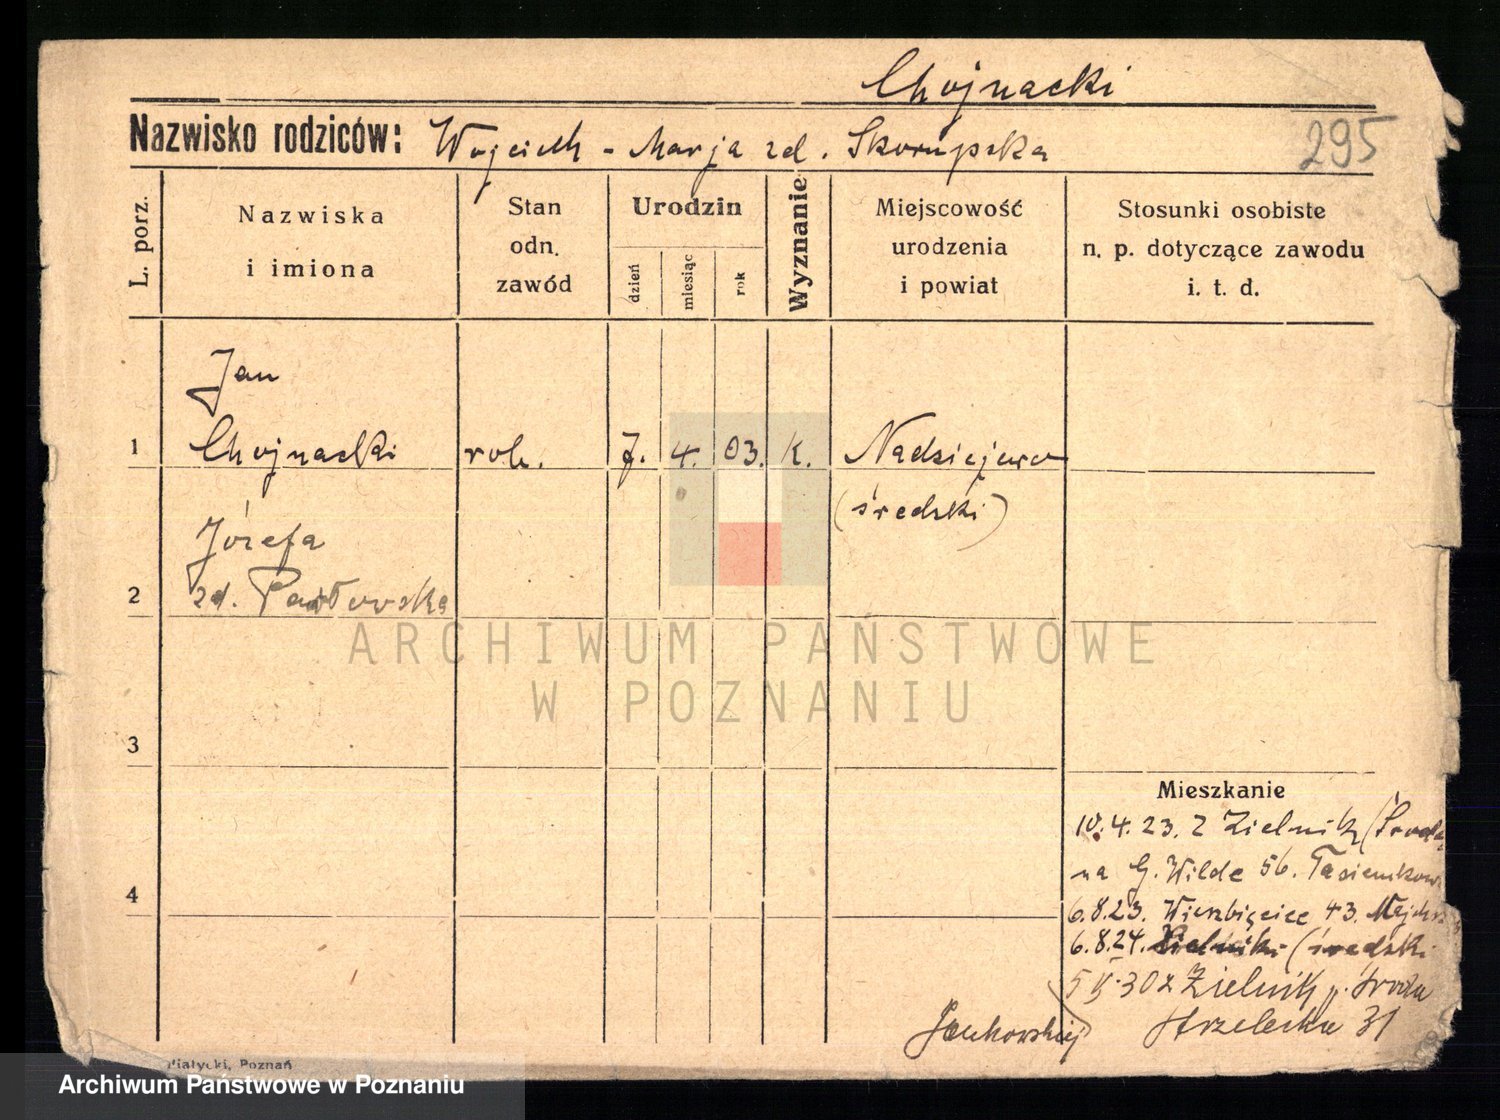 Chojnacki
Nazwisko rodziców: Wojciech - Marja zd. Skorupska
295
L. porz.
Nazwiska
i imiona
Stan
odn.
zawód
Urodzin
dzień
miesiąc
rok
Wyznanie
Miejscowość
urodzenia
i powiat
Stosunki osobiste
n. p. dotyczące zawodu
i. t. d.
Jan
1 Chojnacki rob. 7. 4. 03. k. Nadziejewo
(średzki)
Józefa
2 zd. Pawłowska
ARCHIWUM PAŃSTWOWE
W POZNANIU
3
Mieszkanie
10.4.23. z Zielnik (Środa
4
na G. Wilde 56.
6.8.23. Wierzbięcice 43.
6.8.24. Zielniki (średzki
30 z Zielnik p. Środa
Strzelecka 31
Jankowskiej
Białycki, Poznań
Archiwum Państwowe w Poznaniu